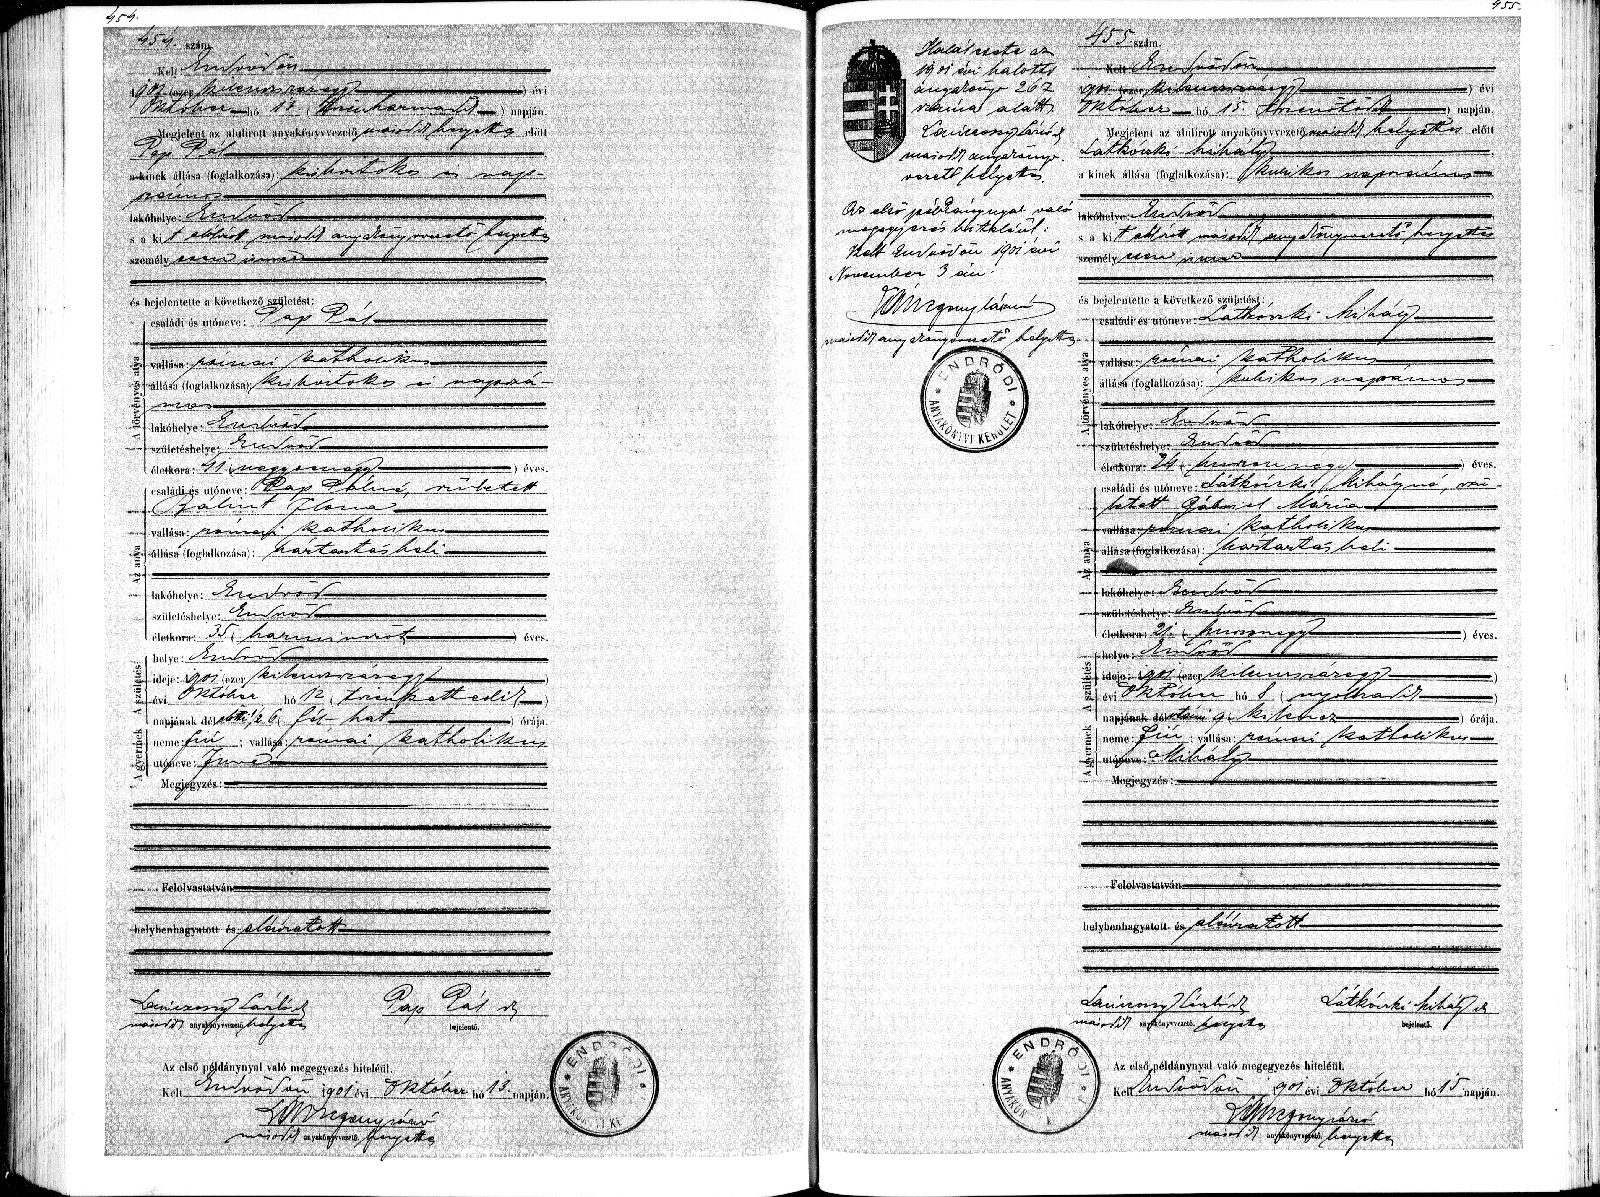 454.
454. szám.
Kelt Endrődön
1901 (ezer kilenczszázegy) évi
Október hó 13 (tizenharmadik) napján.
Megjelent az alulirott anyakönyvvezető második helyettes előtt
Pap Pál
a kinek állása (foglalkozása): kisbirtokos és nap-
számos
lakóhelye: Endrőd
s a kit alólirt, második anyakönyvvezető helyettes
személyesen ismer
és bejelentette a következő születést:
A törvényes atya
családi és utóneve: Pap Pál
vallása: római katholikus
állása (foglalkozása): kisbirtokos és napszá-
mos
lakóhelye: Endrőd
születéshelye: Endrőd
életkora: 41 (negyvenegy) éves.
Az anya
családi és utóneve: Pap Pálné, született
Bálint Ilona
vallása: római katholikus
állása (foglalkozása): háztartásbeli
lakóhelye: Endrőd
születéshelye: Endrőd
életkora: 35 (harminczöt) éves.
A születés
helye: Endrőd
ideje: 1901 (ezer kilenczszázegy)
évi Október hó 12 (tizenkettedik)
napjának délelőtti ½ 6 (fél-hat) órája.
A gyermek
neme: fiú; vallása: római katholikus
utóneve:
Megjegyzés:
Felolvastatván
helybenhagyatott és aláiratott
Pap Pál
második anyakönyvvezető helyettes bejelentő.
Az első példánynyal való megegyezés hiteléül.
Kelt Endrődön 1901 évi Október hó 13. napján.
második anyakönyvvezető helyettes
ENDRŐDI
Halálesete az
1901 évi halotti
anyakönyv 267
száma alatt
második anyakönyv-
vezető helyettes
Az első példánynyal való
megegyezés hiteléül.
Kelt Endrődön 1901 évi
November 3 án.
második anyakönyvvezető helyettes
ENDRŐDI ANYAKÖNYVI KERÜLET
455.
455 szám.
Kelt Endrődön
1901 (ezer kilenczszázegy) évi
Október hó 15 (tizenötödik) napján.
Megjelent az alulirott anyakönyvvezető második helyettes előtt
Látkóczki Mihály
a kinek állása (foglalkozása): kubikos napszámos
lakóhelye: Endrőd
s a kit alólirt második anyakönyvvezető helyettes
személyesen ismer
és bejelentette a következő születést:
A törvényes atya
családi és utóneve: Látkóczki Mihály
vallása: római katholikus
állása (foglalkozása): kubikos napszámos
lakóhelye: Endrőd
születéshelye: Endrőd
életkora: 24 (huszonnégy) éves.
Az anya
családi és utóneve: Látkóczki Mihályné, szü-
letett Gábriel Mária
vallása: római katholikus
állása (foglalkozása): háztartásbeli
lakóhelye: Endrőd
születéshelye: Endrőd
életkora: 21 (huszonegy) éves.
A születés
helye: Endrőd
ideje: 1901 (ezer kilenczszázegy)
évi Október hó 8 (nyolczadik)
napjának délutáni 9 (kilencz) órája.
A gyermek
neme: fiú; vallása: római katholikus
utóneve: Mihály
Megjegyzés:
Felolvastatván
helybenhagyatott és aláiratott
Látkóczki Mihály
második anyakönyvvezető helyettes bejelentő.
Az első példánynyal való megegyezés hiteléül.
Kelt Endrődön 1901 évi Október hó 15 napján.
második anyakönyvvezető helyettes
ENDRŐDI